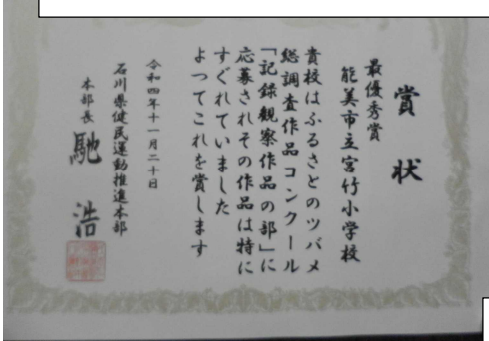 賞状
最優秀賞
能美市立宮竹小学校
貴校はふるさとのツバメ
総調査作品コンクール
「記録観察作品の部」に
応募されその作品は特に
すぐれていました
よってこれを賞します
令和四年十一月二十日
石川県健民運動推進本部
本部長 馳浩